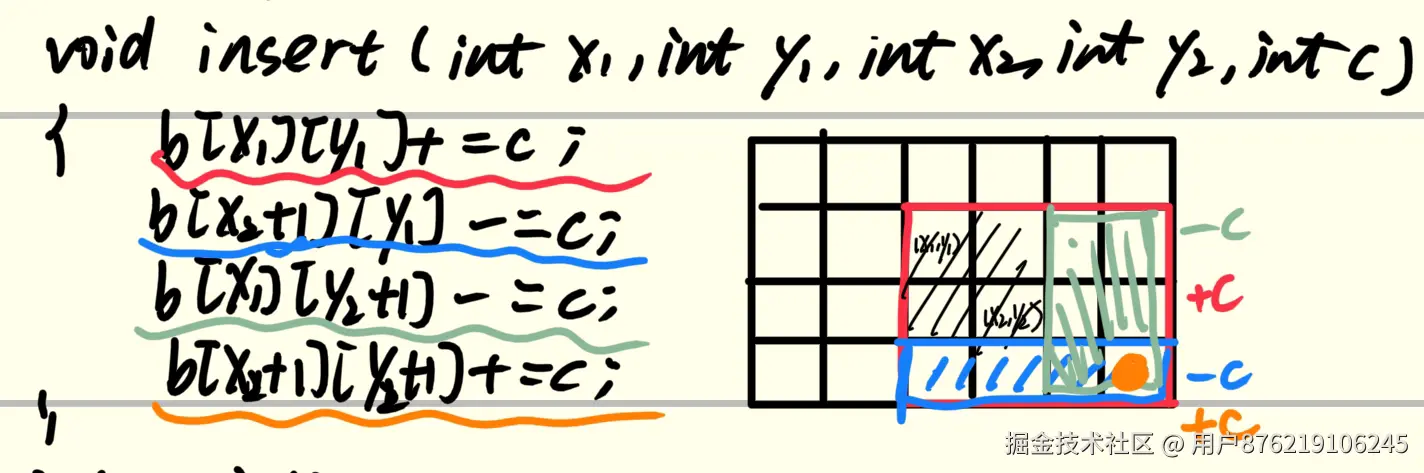 void insert (int x₁,int y₁,int x₂,int y₂,int c)
{ b[x₁][y₁]+=c;
b[x₂+1][y₁]-=c;
b[x₁][y₂+1]-=c;
b[x₂+1][y₂+1]+=c;
}
(x₁,y₁)
(x₂,y₂)
-c
+c
-c
+c
掘金技术社区 @ 用户876219106245